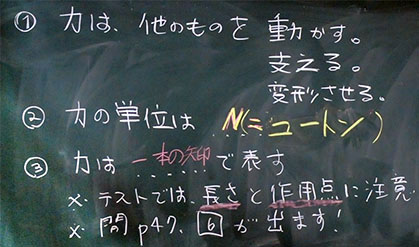 ① 力は、他のものを動かす。
支える。
変形させる。
② 力の単位は N(=ニュートン)
③ 力は一本の矢印で表す
x. テストでは、長さと作用点に注意
x. 問p47, 6 が出ます!